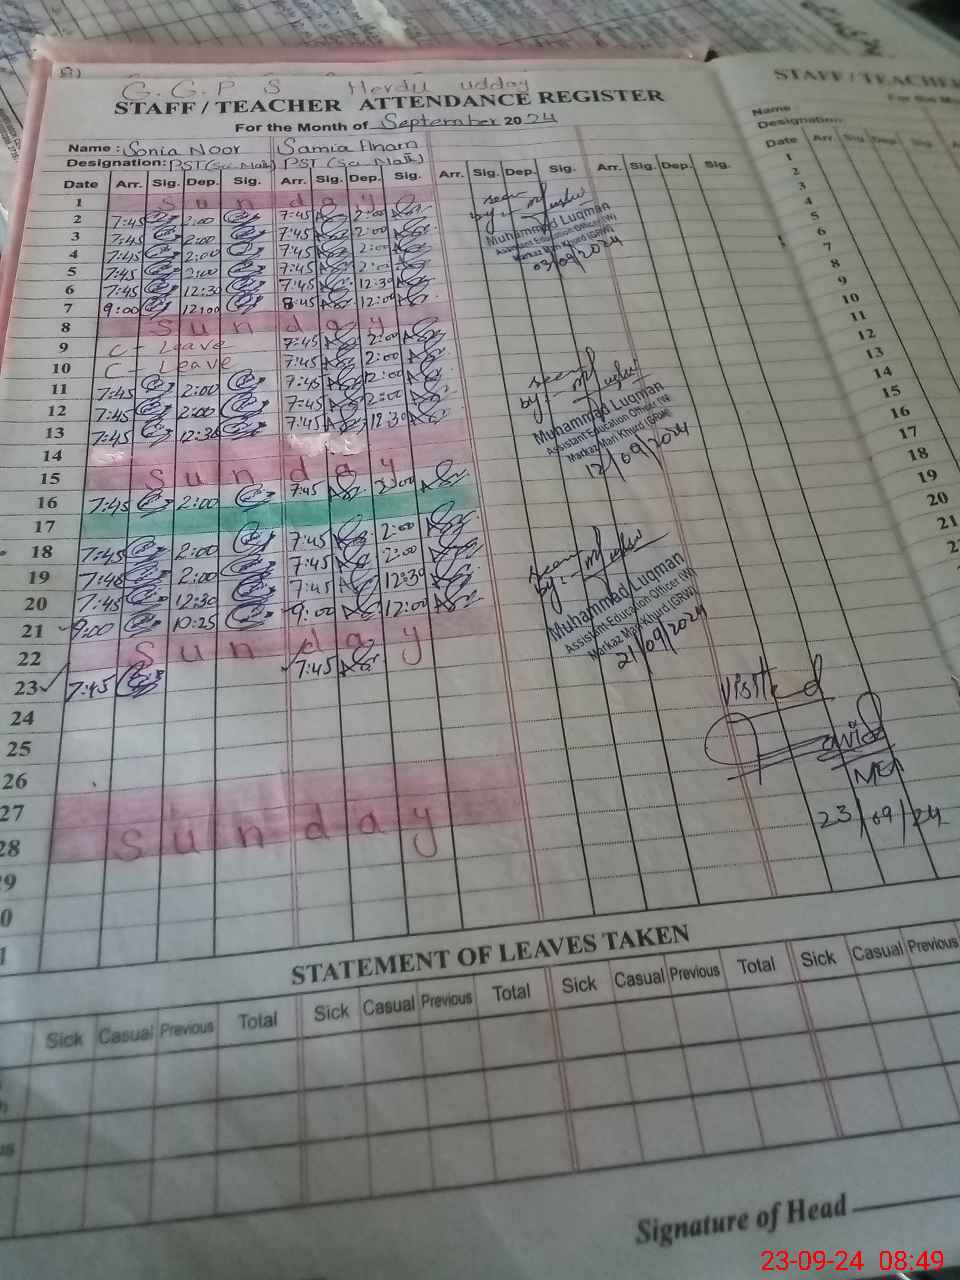 G.G.P.S Herdu udday
STAFF / TEACHER ATTENDANCE REGISTER
For the Month of September 2024
Name : Sonia Noor Samia Anam
Designation: PST (Sci Math) PST (Sci Math)
Date Arr. Sig. Dep. Sig. Arr. Sig. Dep. Sig. Arr. Sig. Dep. Sig. Arr. Sig. Dep. Sig.
1 S u n d a y
2 7:45 2:00 7:45 2:00
3 7:45 2:00 7:45 2:00
4 7:45 2:00 7:45 2:00
5 7:45 2:00 7:45 2:00
6 7:45 12:30 7:45 12:30
7 9:00 12:00 8:45 12:00
8 S u n d a y
9 C - Leave 7:45 2:00
10 C - Leave 7:45 2:00
11 7:45 2:00 7:45 2:00
12 7:45 2:00 7:45 2:00
13 7:45 12:30 7:45 12:30
14
15 S u n d a y
16 7:45 2:00 7:45 2:00
17
18 7:45 2:00 7:45 2:00
19 7:46 2:00 7:45 2:00
20 7:45 12:30 7:45 12:30
21 9:00 10:25 9:00 12:00
22 S u n d a y
23 7:45 7:45
24
25
26
27
28 S u n d a y
9
0
1
seen by
Muhammad Luqman
Assistant Education Officer (W)
Markaz Mari Khurd (GRW)
03/09/2024
seen by
Muhammad Luqman
Assistant Education Officer (W)
Markaz Mari Khurd (GRW)
12/09/2024
seen by
Muhammad Luqman
Assistant Education Officer (W)
Markaz Mari Khurd (GRW)
21/09/2024
visited
MEA
23/09/24
STATEMENT OF LEAVES TAKEN
Sick Casual Previous Total Sick Casual Previous Total Sick Casual Previous Total Sick Casual Previous
Signature of Head
STAFF / TEACHER
Name
Designation
Date Arr. Sig. Dep. Sig.
1
2
3
4
5
6
7
8
9
10
11
12
13
14
15
16
17
18
19
20
21
23-09-24 08:49